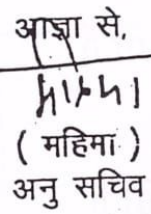 आज्ञा से,
( महिमा )
अनु सचिव